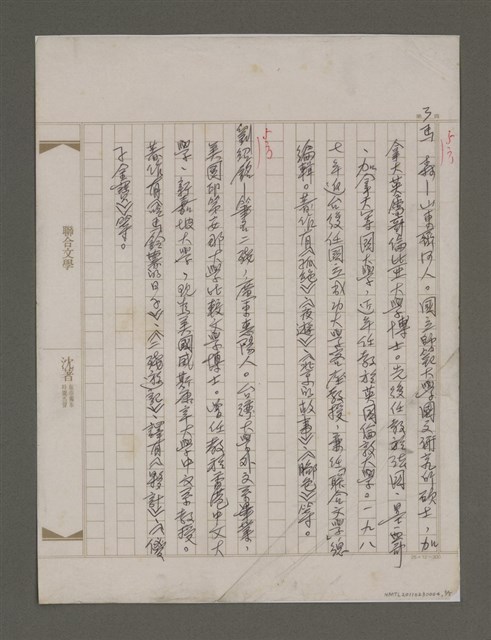 馬森—山東齊河人。國立師範大學國文研究所碩士,加
拿大英屬哥倫比亞大學博士。先後任教於法國、墨西哥
、加拿大等國大學,近年任教於英國倫敦大學。一九八
七年返台後任國立成功大學客座教授,兼任「聯合文學」總
編輯。著作有《孤絕》《夜遊》《北京的故事》《腳色》等。
劉紹銘—筆名二殘,廣東惠陽人。台灣大學外文系畢業,
美國印第安那大學比較文學博士。曾任教於香港中文大
學、新嘉坡大學,現為美國威斯康辛大學中文系教授。
著作有《吃馬鈴薯的日子》、《二殘遊記》,譯有《夥計》、《傻
子金寶》等。
聯合文學